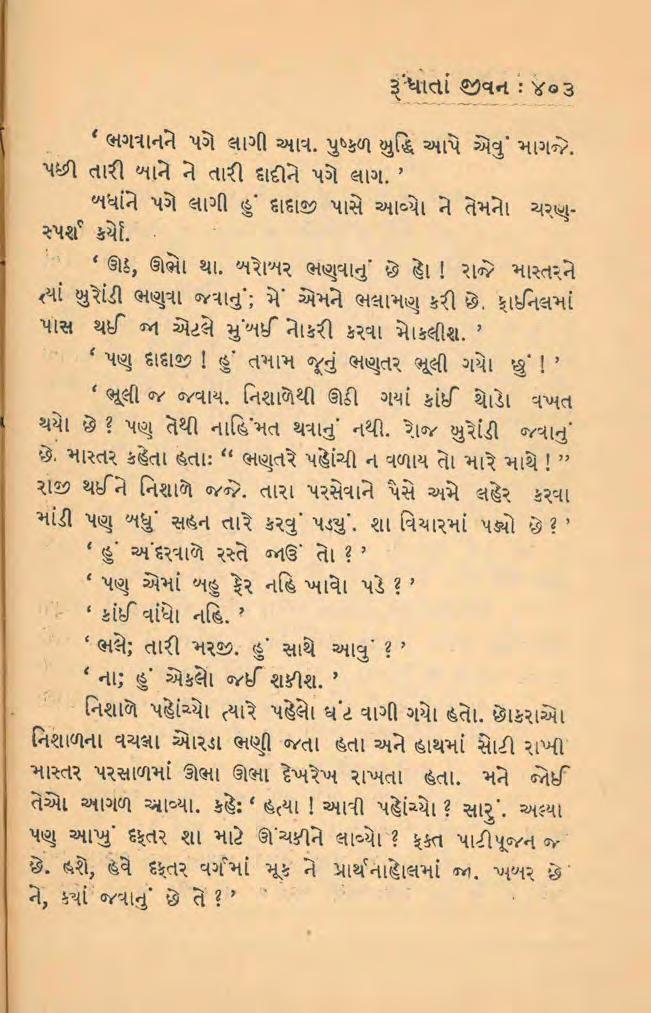 રૂંધાતાં જીવન : ૪૦૩
‘ ભગવાનને પગે લાગી આવ. પુષ્કળ બુદ્ધિ આપે એવું માગજે.
પછી તારી બાને ને તારી દાદીને પગે લાગ. ’
બધાંને પગે લાગી હું દાદાજી પાસે આવ્યો ને તેમનો ચરણ-
સ્પર્શ કર્યો.
‘ ઊઠ, ઊભો થા. બરોબર ભણવાનું છે હો ! રાજે માસ્તરને
ત્યાં ખુરોંડી ભણવા જવાનું; મેં એમને ભલામણ કરી છે. ફાઈનલમાં
પાસ થઈ જા એટલે મુંબઈ નોકરી કરવા મોકલીશ. ’
‘ પણ દાદાજી ! હું તમામ જૂનું ભણતર ભૂલી ગયો છું ! ’
‘ ભૂલી જ જવાય. નિશાળેથી ઊઠી ગયાં કાંઈ થોડો વખત
થયો છે ? પણ તેથી નાહિંમત થવાનું નથી. રોજ ખુરોંડી જવાનું
છે. માસ્તર કહેતા હતાઃ “ ભણતરે પહોંચી ન વળાય તો મારે માથે ! ”
રાજી થઈને નિશાળે જજે. તારા પરસેવાને પૈસે અમે લહેર કરવા
માંડી પણ બધું સહન તારે કરવું પડ્યું. શા વિચારમાં પડ્યો છે ? ’
‘ હું અંદરવાળે રસ્તે જાઉં તો ? ’
‘ પણ એમાં બહુ ફેર નહિ ખાવો પડે ? ’
‘ કાંઈ વાંધો નહિ. ’
‘ ભલે; તારી મરજી. હું સાથે આવું ? ’
‘ ના; હું એકલો જઈ શકીશ. ’
નિશાળે પહોંચ્યો ત્યારે પહેલો ઘંટ વાગી ગયો હતો. છોકરાઓ
નિશાળના વચલા ઓરડા ભણી જતા હતા અને હાથમાં સોટી રાખી
માસ્તર પરસાળમાં ઊભા ઊભા દેખરેખ રાખતા હતા. મને જોઈ
તેઓ આગળ આવ્યા. કહેઃ ‘ હત્યા ! આવી પહોંચ્યો ? સારું. અલ્યા
પણ આખું દફતર શા માટે ઊંચકીને લાવ્યો ? ફક્ત પાટીપૂજન જ
છે. હશે, હવે દફતર વર્ગમાં મૂક ને પ્રાર્થનાહોલમાં જા. ખબર છે
ને, કયાં જવાનું છે તે ? ’